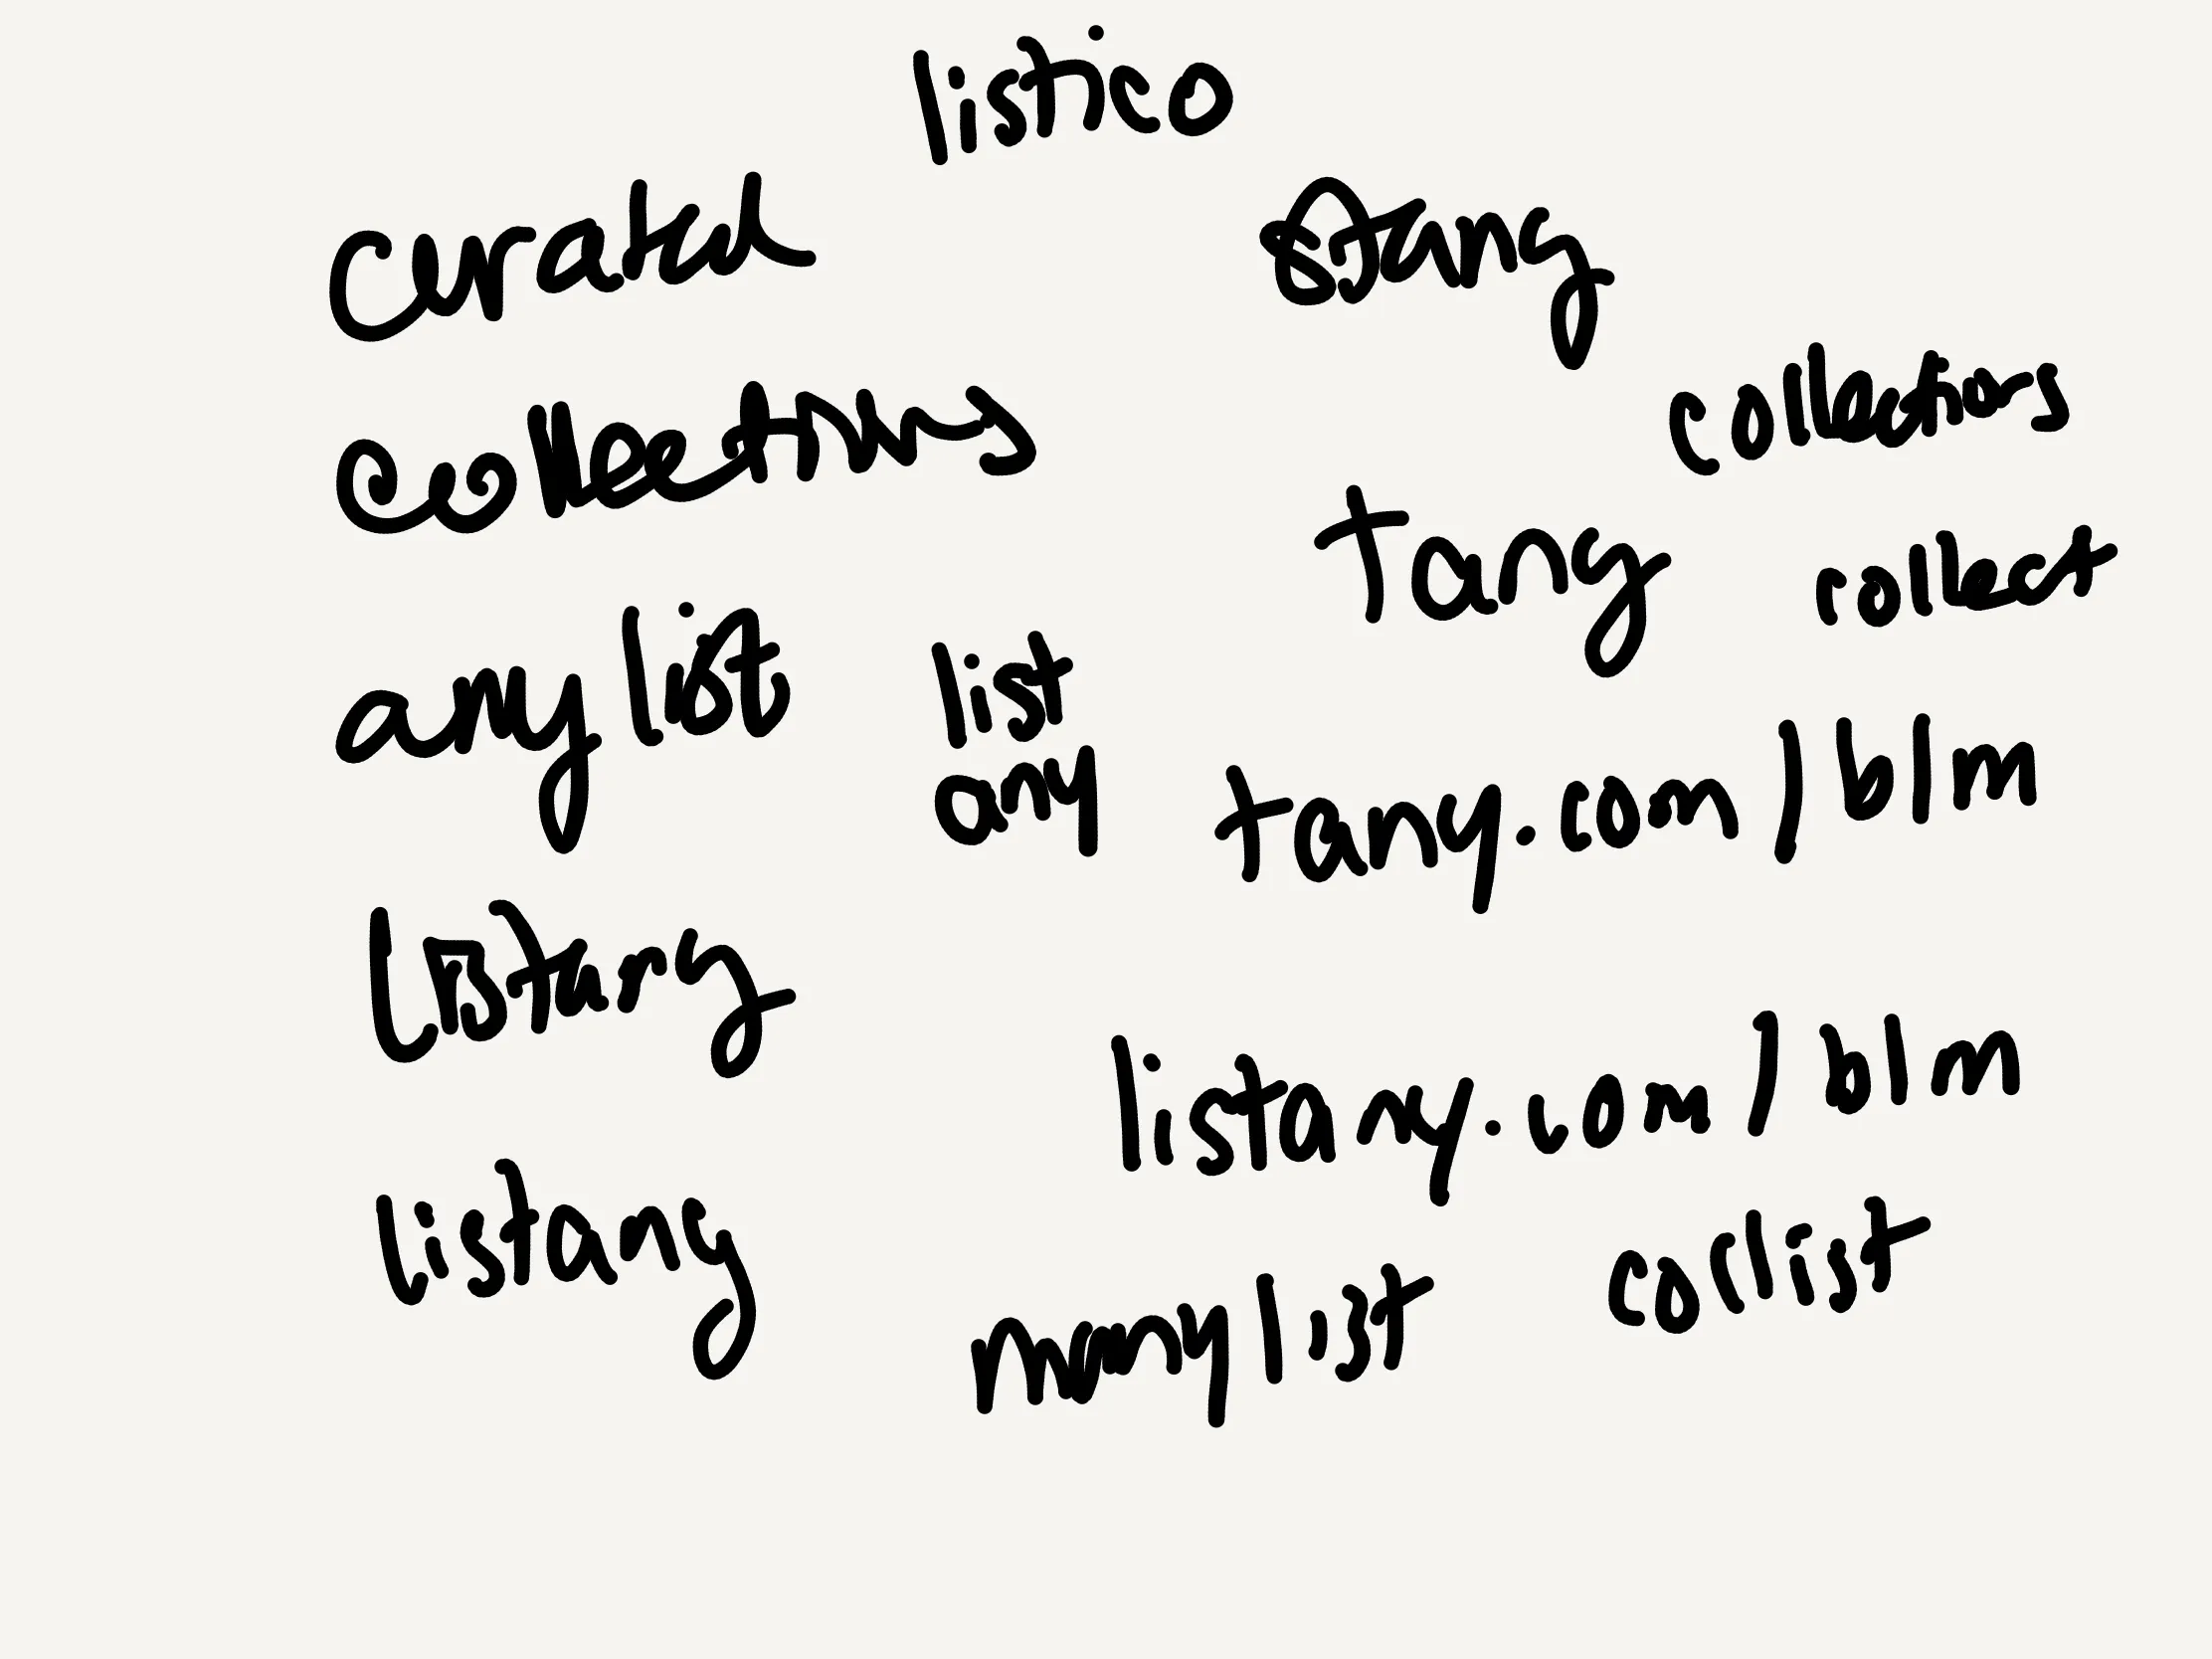 listico
curated
stany
collections
collections
tany
collect
any list
list
any
tany.com/blm
listany
listany.com/blm
listany
manylist
collist